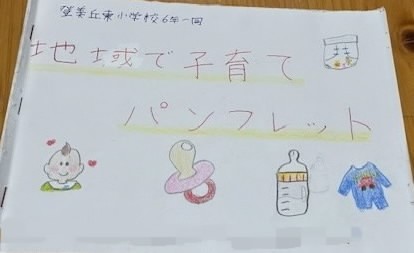 登美丘東小学校6年一同
地域で子育て
パンフレット